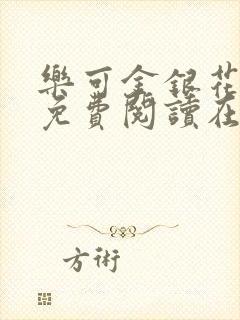 樂可金銀花
免費閱讀在
方術